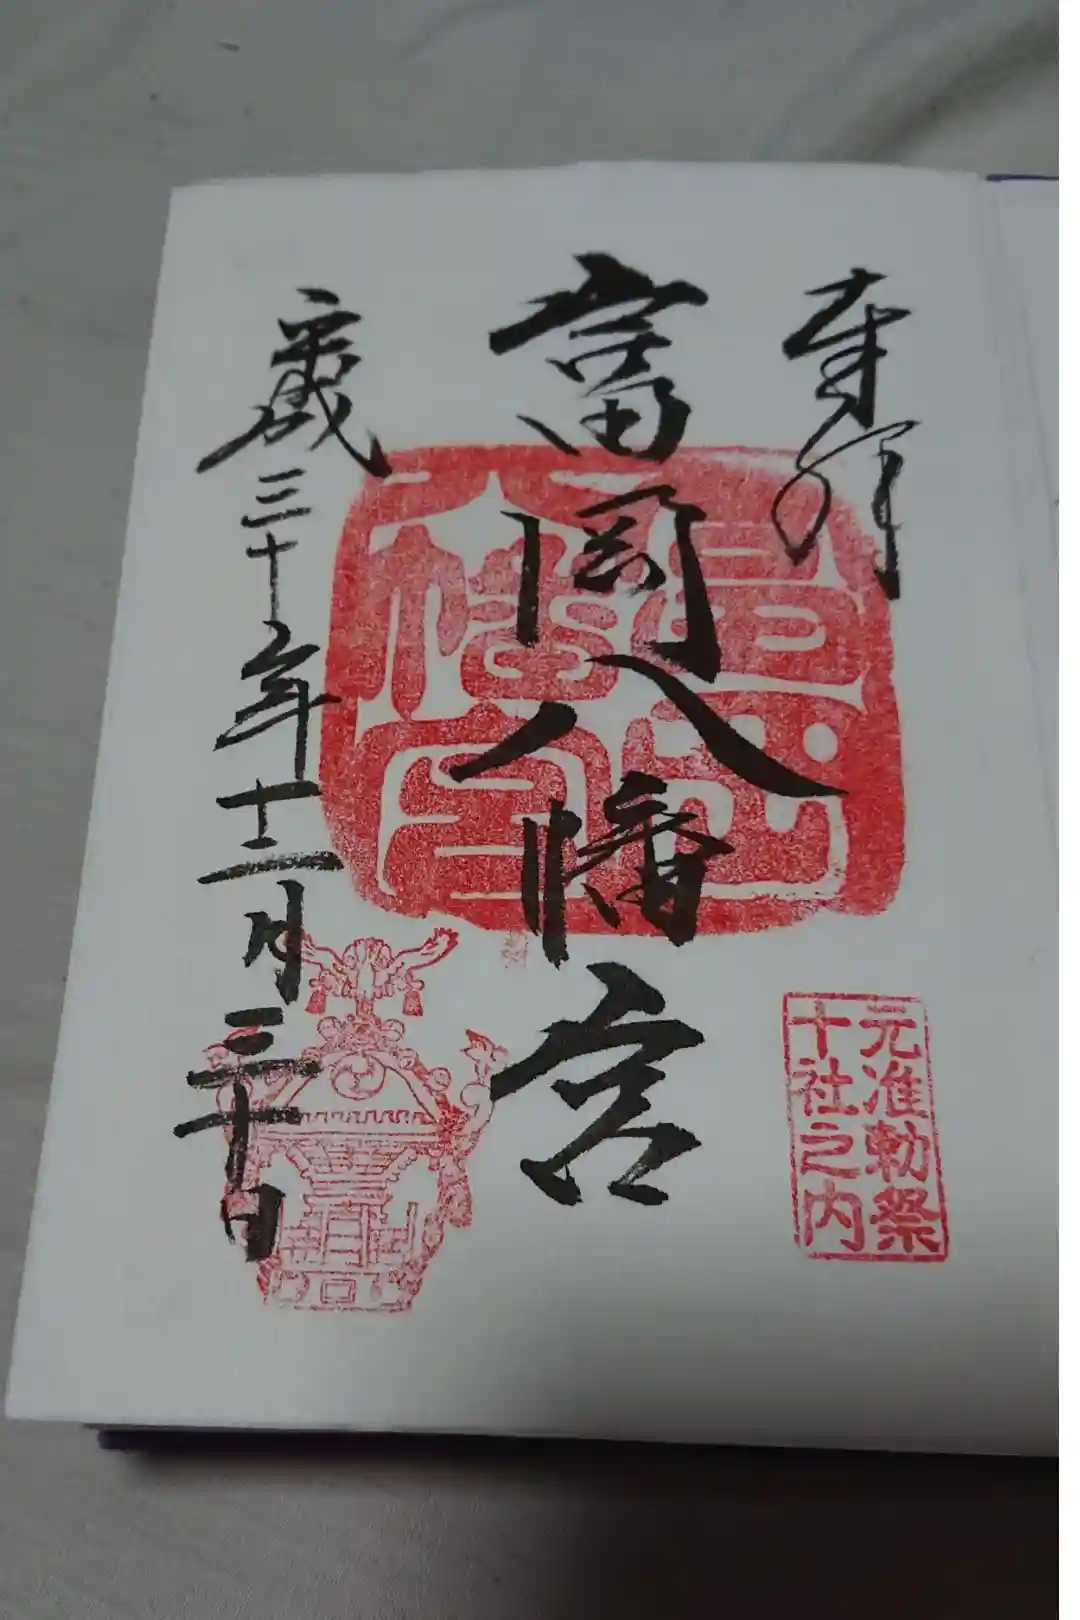 奉拝
富岡八幡宮
富岡八幡宮
元准勅祭
十社之内
平成三十年十二月三十日